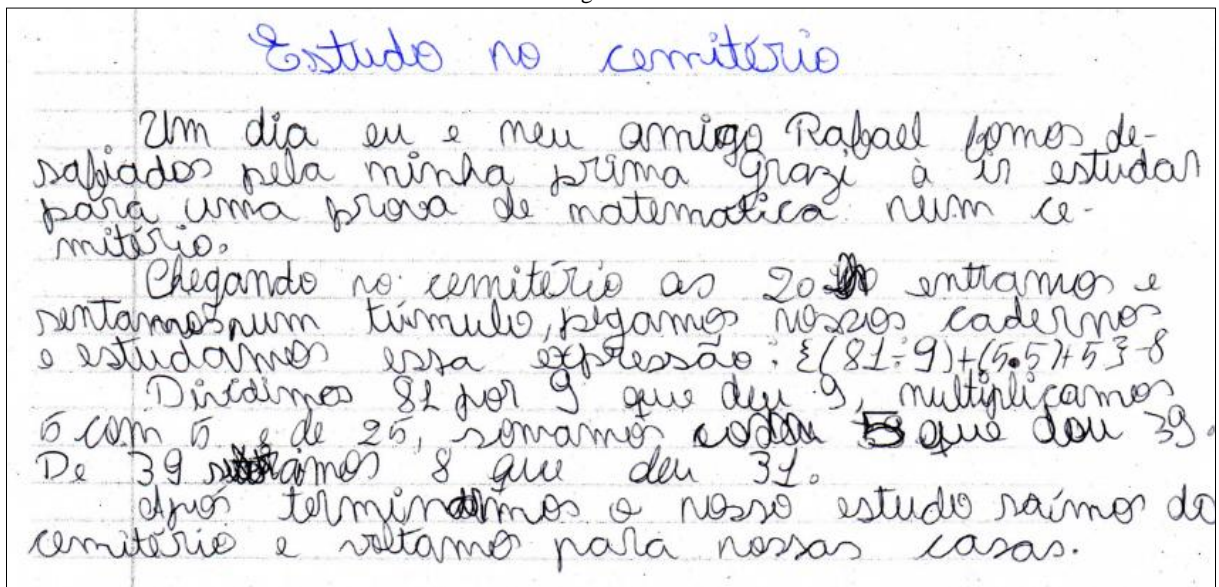 Estudo no cemitério
Um dia eu e meu amigo Rafael fomos de-
safiados pela minha prima Grazi à ir estudar
para uma prova de matemática num ce-
mitério.
Chegando no cemitério as 20 entramos e
sentamos num túmulo, pegamos nossos cadernos
e estudamos essa expressão: {(81÷9)+(5.5)+5}-8
Dividimos 81 por 9 que deu 9, multiplicamos
5 com 5 e de 25, somamos que dou 39.
De 39 8 que deu 31.
Após terminarmos o nosso estudo saímos do
cemitério e voltamos para nossas casas.